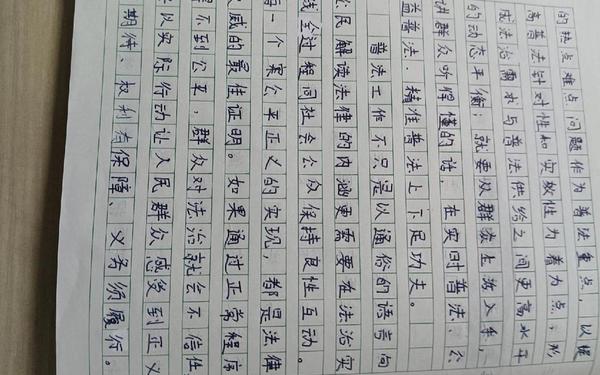 的热点难点问题作为普法重点，以提
高普法针对性和实效性为着力点，形
成法治需求与普法供给之间更高水平
的动态平衡；就要从群众上路入手，
讲群众听得懂的话，在实时普法、公
益普法、精准普法上下足功夫。
普法工作不只是以通俗的语言向
公民解读法律的内涵更需要在法治实
践全过程同社会公众保持良性互动。
每一个案公平正义的实现，都是法律
权威的最佳证明。如果通过正常程序
得不到公平，群众对法治就会不信任
以实际行动让人民群众感受到正义
期待、权利有保障、义务须履行。